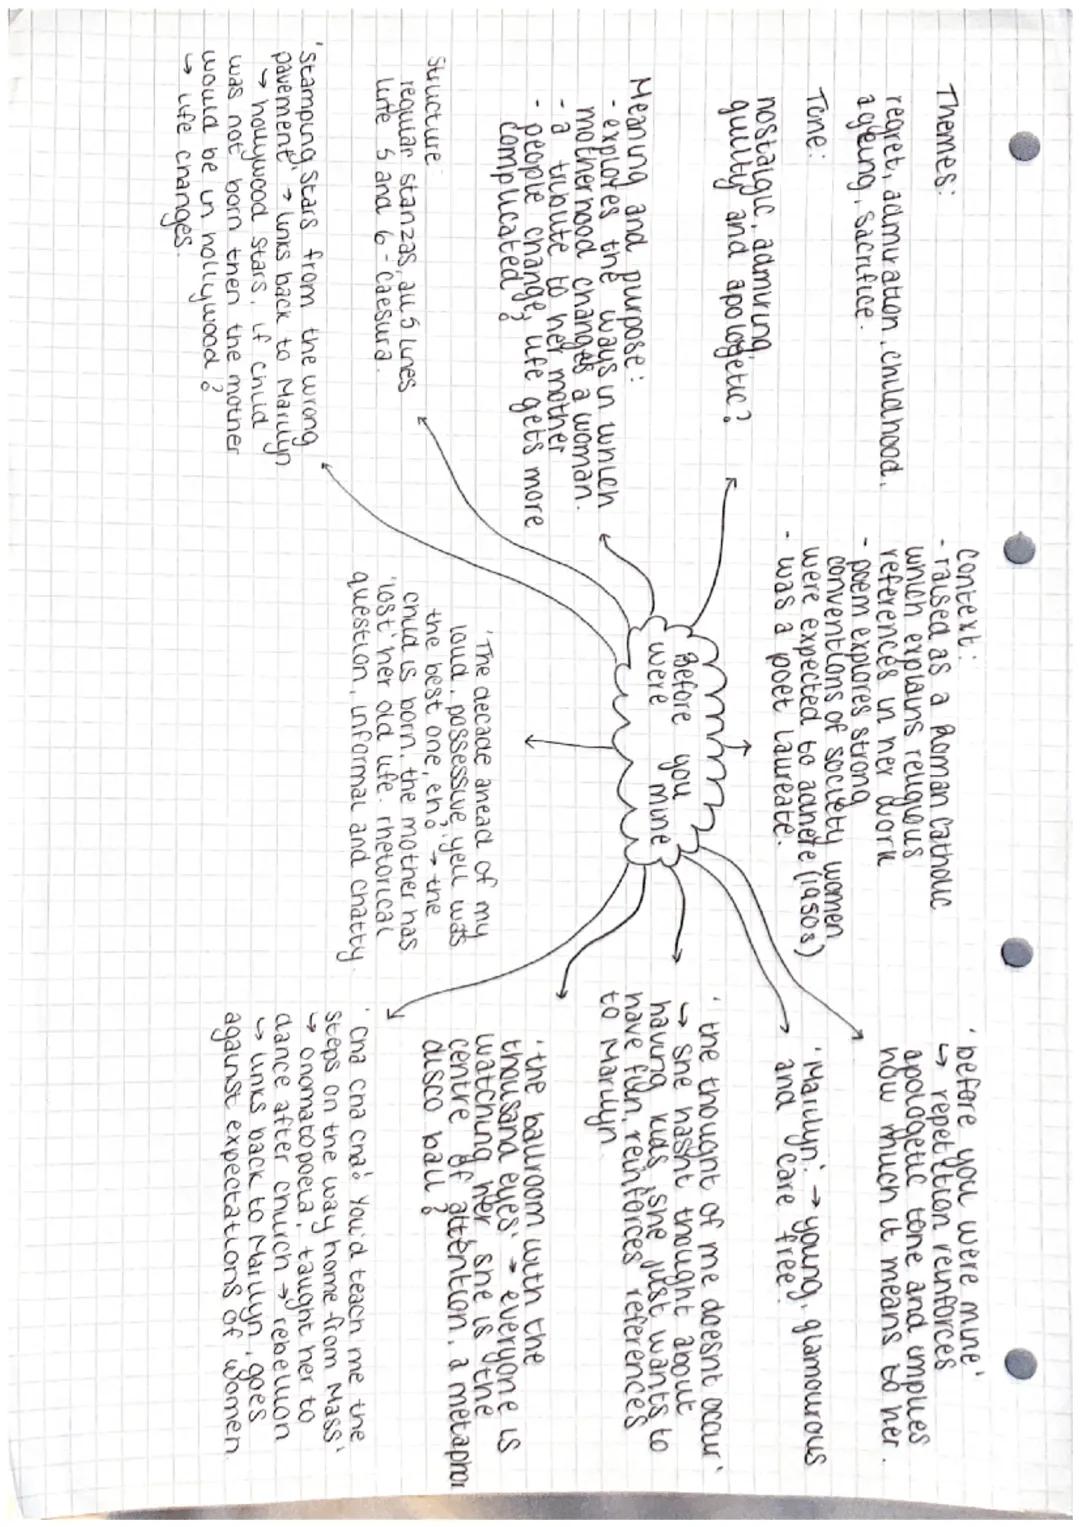 Themes:
regret, admiration, childhood,
ageing, sacrifice.
Tone:
nostalgic, admiring,
guilty and apologetic?
Meaning and purpose:
- explores the ways in which
motherhood changes a woman.
- a tribute to her mother
- people change, life gets more
complicated?
Structure:
regular stanzas, all 5 lines
line 5 and 6 - caesura.
'stamping stars from the wrong
pavement' → links back to Marilyn
↳ hollywood stars, if child
was not born then the mother
would be in hollywood?
↳ life changes.
Context:
- raised as a Roman Catholic
which explains religious
references in her work
- poem explores strong
conventions of society women
were expected to adhere (1950s)
- was a poet laureate.
Before you
were mine
'The decade ahead of my
loud, possessive yell was
the best one, eh?' → the
child is born, the mother has
'lost' her old life. rhetorical
question, informal and chatty.
'before you were mine'
↳ repetition reinforces
apologetic tone and implies
how much it means to her.
'Marilyn' → young, glamourous
and care free.
'the thought of me doesnt occur'
↳ she hasnt thought about
having kids, she just wants to
have fun, reinforces references
to Marilyn.
'the ballroom with the
thousand eyes' → everyone is
watching her, she is the
centre of attention, a metaphor
disco ball?
'Cha cha cha! You'd teach me the
steps on the way home from Mass'
↳ onomatopoeia, taught her to
dance after church → rebellion
↳ links back to Marilyn, goes
against expectations of women.